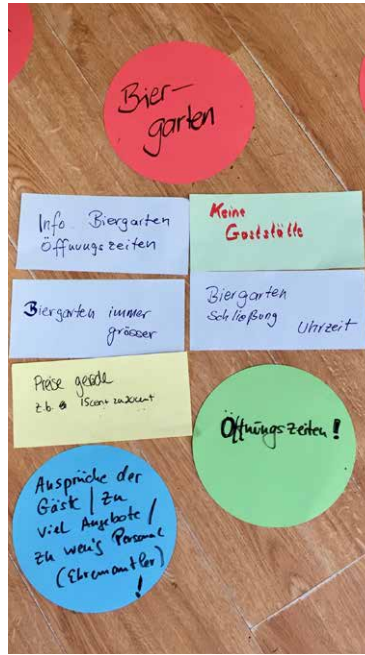 Bier-
garten
Info Biergarten
Öffnungszeiten
Keine
Gaststätte
Biergarten immer
grösser
Biergarten
Schließung
Uhrzeit
Preise gerade
z.b.
Öffnungszeiten!
Ansprüche der
Gäste / zu
viel Angebote /
zu wenig Personal
(Ehrenamtler)
!